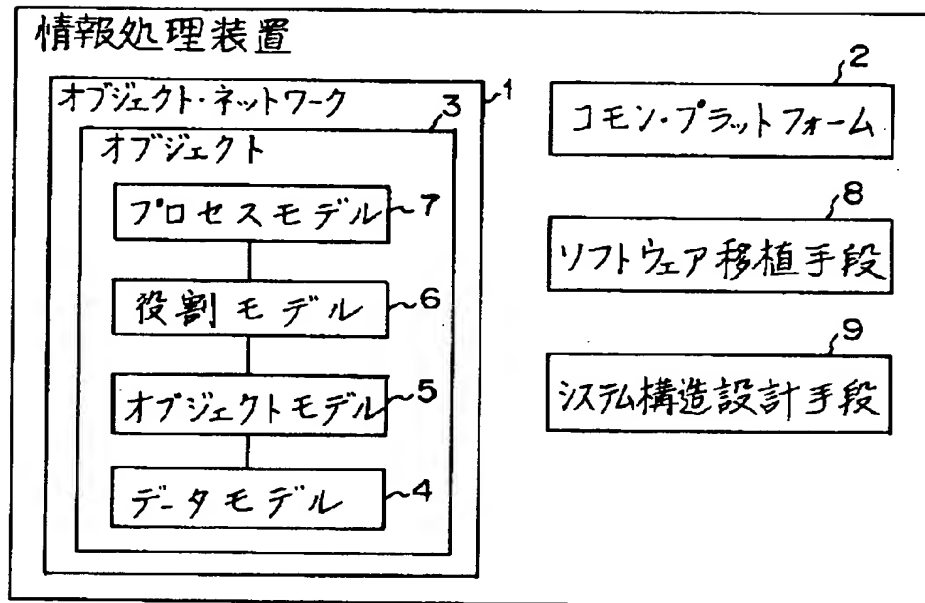 情報処理装置
オブジェクト・ネットワーク 1
オブジェクト 3
プロセスモデル 7
役割モデル 6
オブジェクトモデル 5
データモデル 4
2
コモン・プラットフォーム
8
ソフトウェア移植手段
9
システム構造設計手段